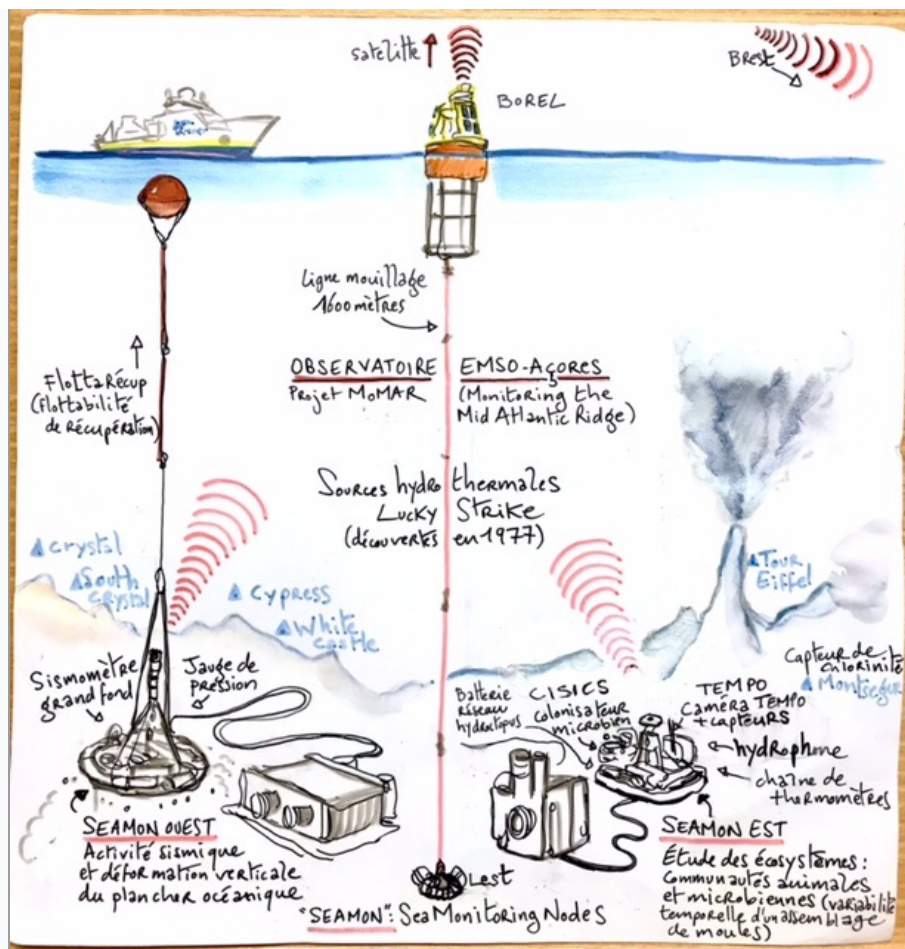 satelitte
BOREL
Brest
Ligne mouillage
1600 mètres
OBSERVATOIRE EMSO-AÇORES
Projet MoMAR (Monitoring the
Mid Atlantic Ridge)
FlottaRécup
(Flottabilité
de Récupération)
Sources hydrothermales
Lucky Strike
(découvertes en 1977)
Crystal
South
Crystal
Cypress
White
Castle
Tour
Eiffel
Capteur de
chlorinité
Montsegur
Sismomètre
grand fond
Jauge de
pression
Batterie
réseau
hydroctopus
CISICS
colonisateur
microbien
TEMPO
Caméra TEMPO
+ capteurs
hydrophone
chaîne de
thermomètres
SEAMON OUEST
Activité sismique
et déformation verticale
du plancher océanique
Lest
"SEAMON": Sea Monitoring Nodes
SEAMON EST
Étude des écosystèmes :
communautés animales
et microbiennes (variabilité
temporelle d'un assemblage
de moules)